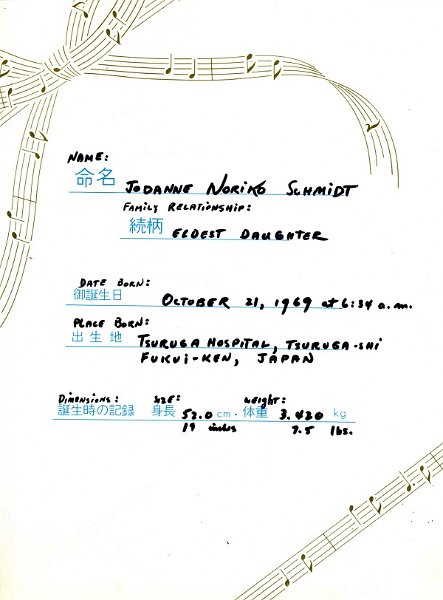 NAME:
命名 JODANNE NORIKO SCHMIDT
FAMILY RELATIONSHIP:
続柄 ELDEST DAUGHTER
DATE BORN:
御誕生日 OCTOBER 21, 1969 at 6:34 a.m.
PLACE BORN:
出生地 TSURUGA HOSPITAL, TSURUGA-SHI
FUKUI-KEN, JAPAN
DIMENSIONS: SIZE: WEIGHT:
誕生時の記録 身長 52.0 cm · 体重 3.420 kg
19 inches 7.5 lbs.